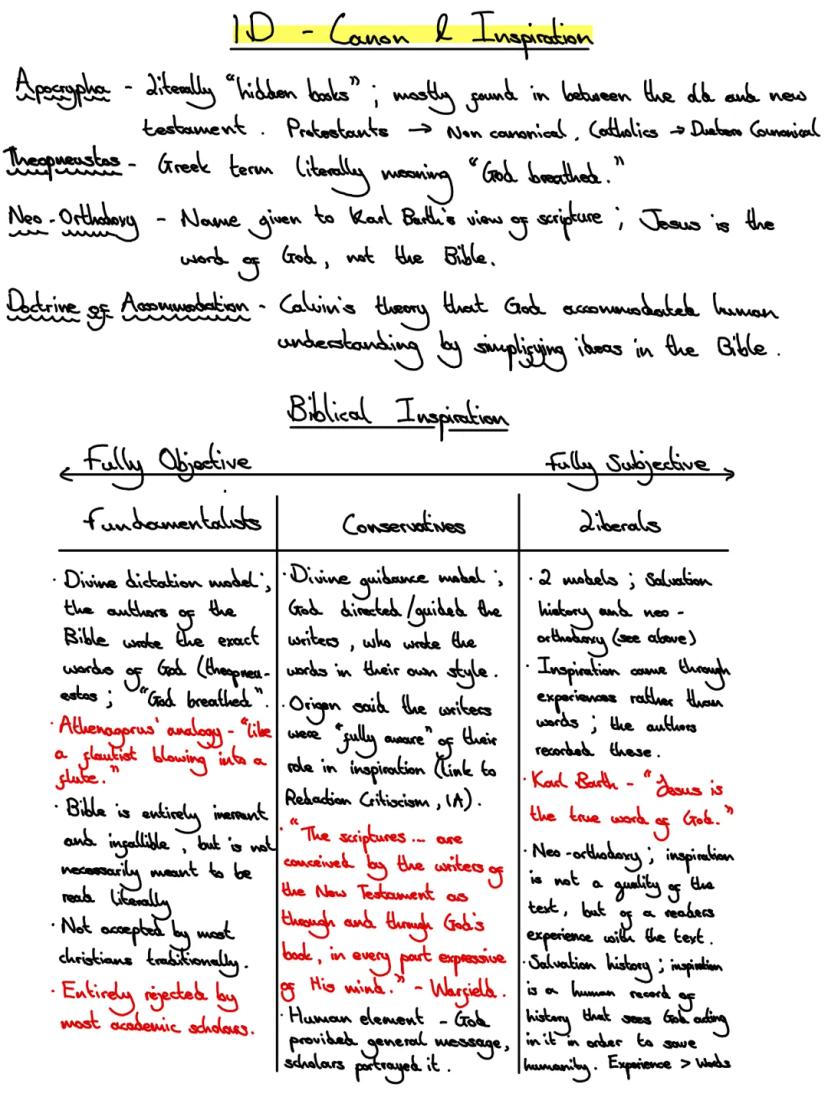 1D - Canon & Inspiration
Apocrypha - Literally "hidden books" ; mostly found in between the old and new
testament. Protestants → Non canonical, Catholics → Duetero Canonical
Theopneustos - Greek term literally meaning "God breathed."
Neo-Orthodoxy - Name given to Karl Barth's view of scripture ; Jesus is the
word of God, not the Bible.
Doctrine of Accommodation - Calvin's theory that God accommodated human
understanding by simplifying ideas in the Bible.
Biblical Inspiration
Fully Objective
Fully Subjective
Fundamentalists
· Divine dictation model ;
the authors of the
Bible wrote the exact
words of God (theopneu-
estos ; "God breathed".
· Athenagorus' analogy - "like
a flautist blowing into a
flute."
· Bible is entirely inerrant
and infallible, but is not
necessarily meant to be
read literally
· Not accepted by most
christians traditionally.
· Entirely rejected by
most academic scholars.
Conservatives
· Divine guidance model ;
God directed/guided the
writers, who wrote the
words in their own style.
· Origen said the writers
were "fully aware" of their
role in inspiration (link to
Redaction Critiscism, 1A).
· "The scriptures ... are
conceived by the writers of
the New Testament as
through and through God's
book, in every part expressive
of His mind." - Warfield.
· Human element - God
provided general message,
scholars portrayed it.
Liberals
· 2 models ; salvation
history and neo-
orthodoxy (see above)
· Inspiration came through
experiences rather than
words ; the authors
recorded these.
· Karl Barth - "Jesus is
the true word of God."
· Neo-orthodoxy ; inspiration
is not a quality of the
text, but of a readers
experience with the text.
· Salvation history ; inspiration
is a human record of
history that sees God acting
in it in order to save
humanity. Experience > Words